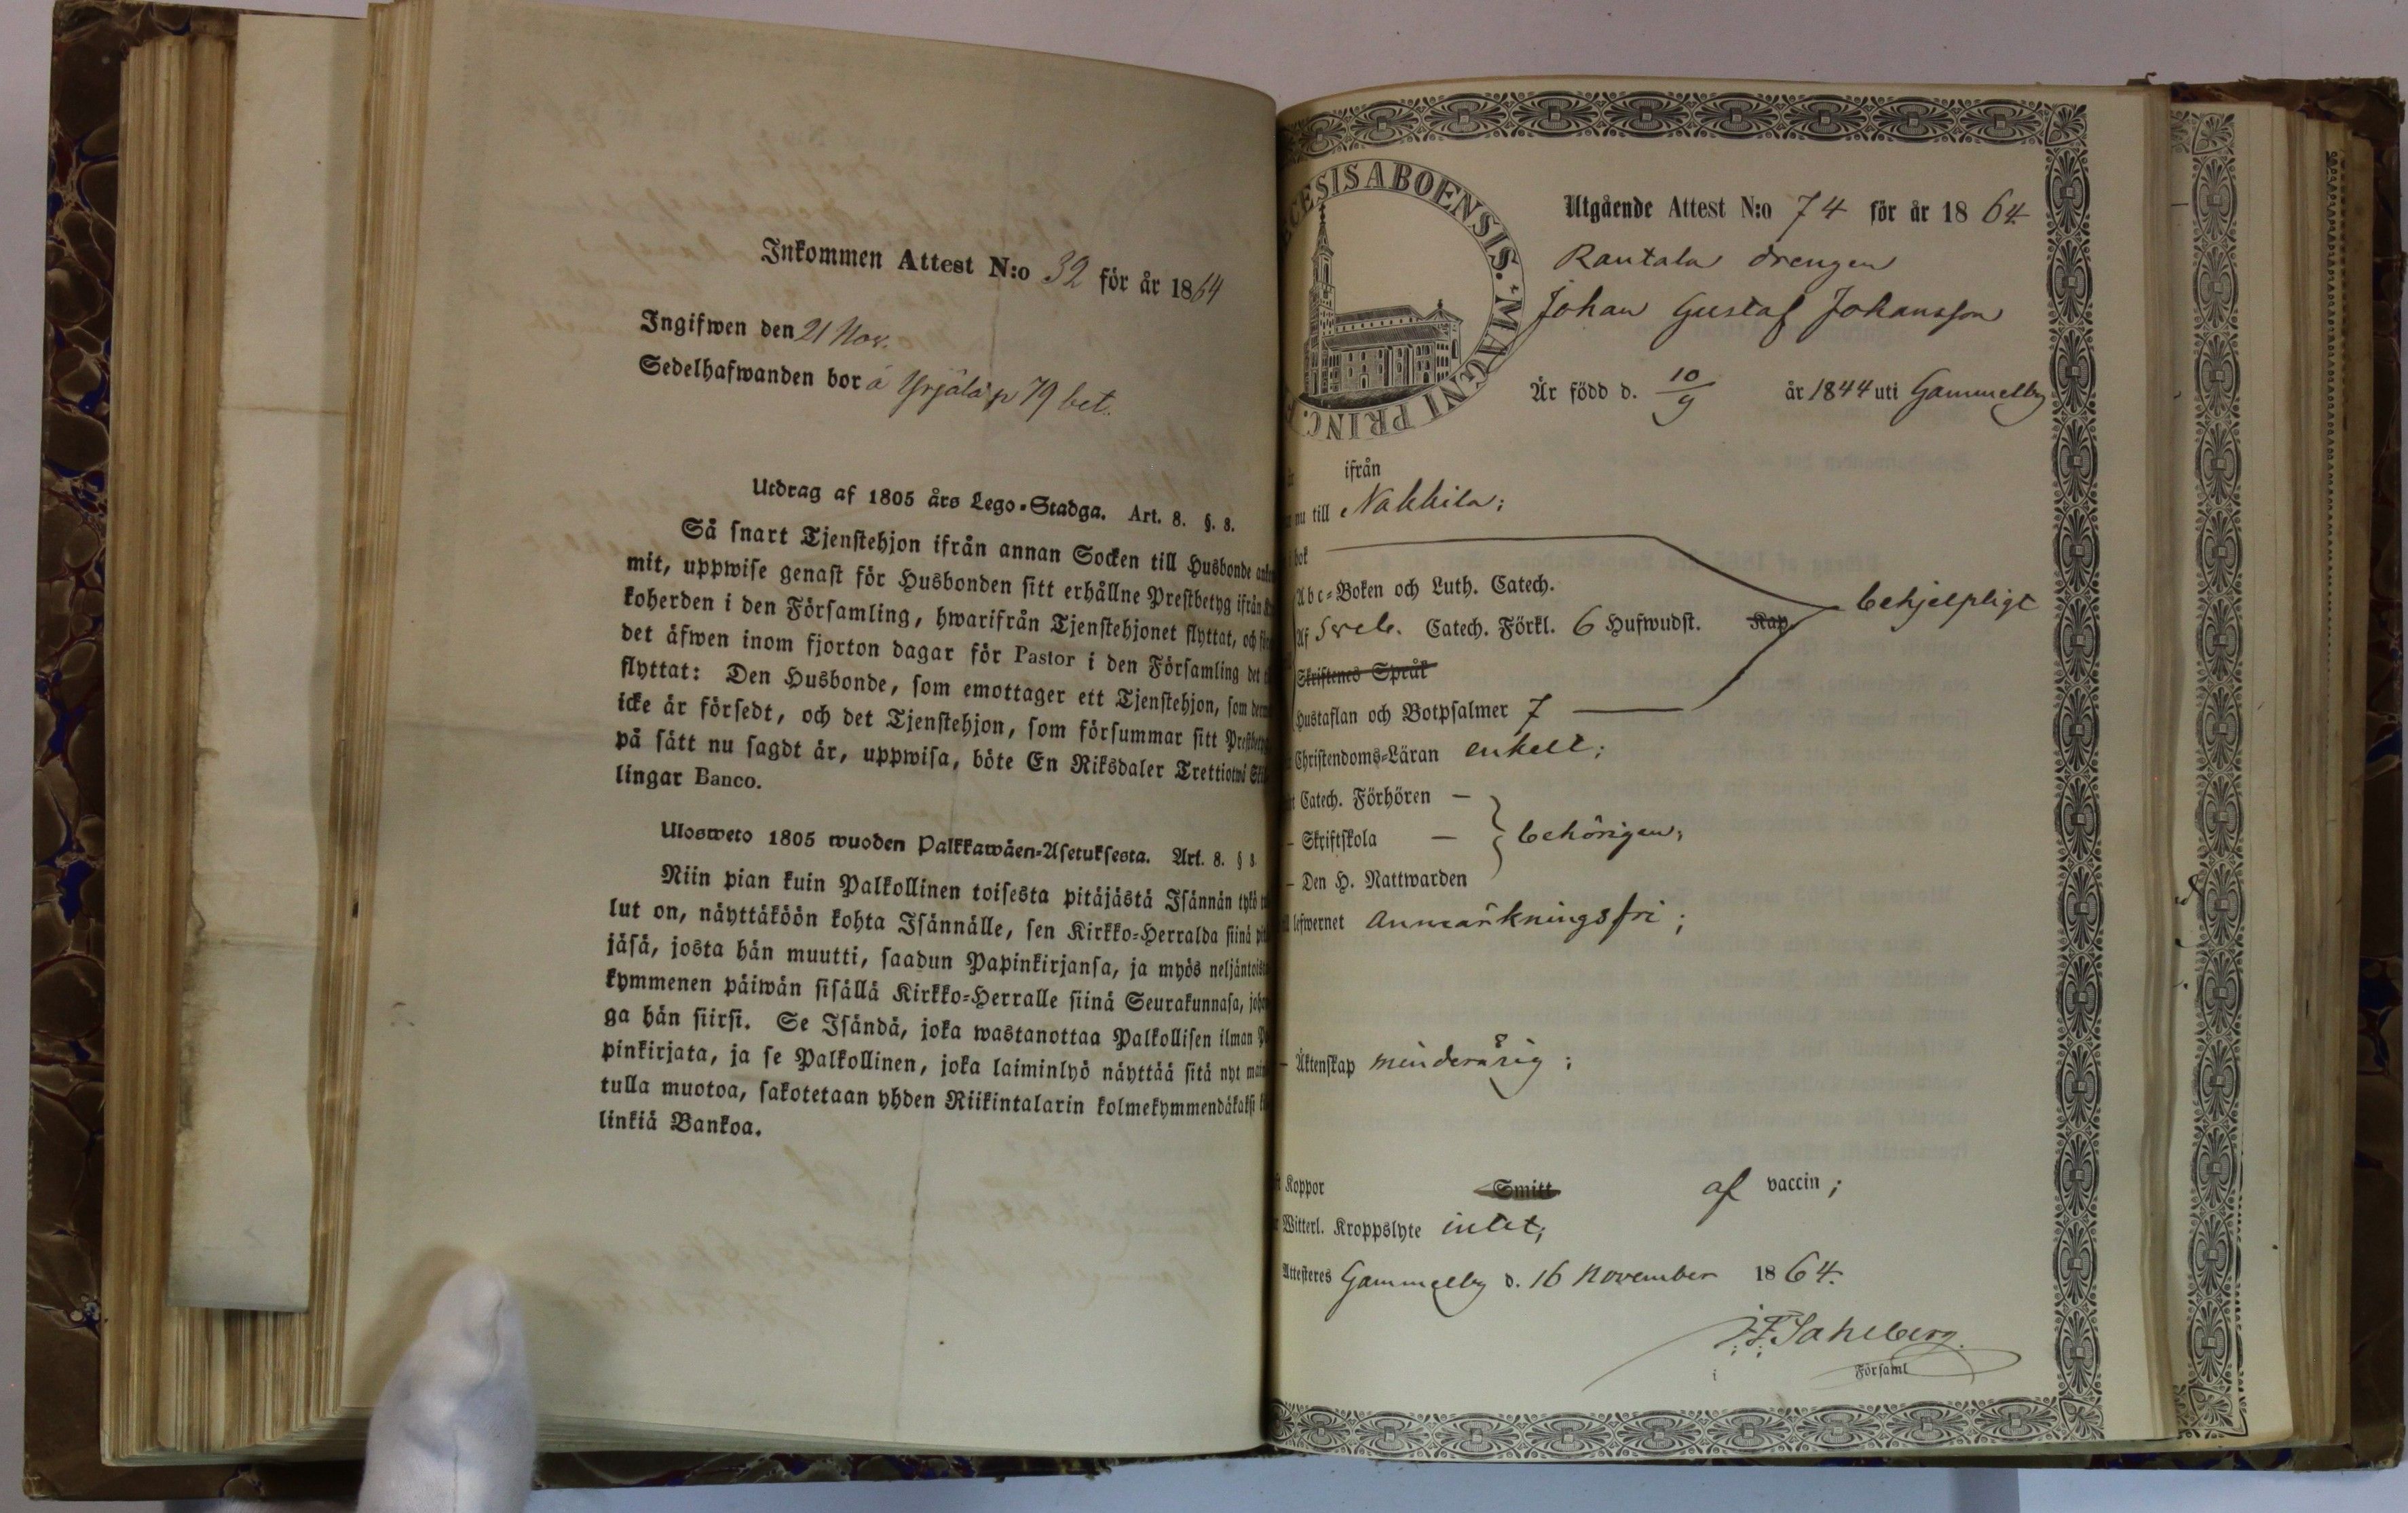 Inkommen Attest N:o 32 för år 1864
Ingifwen den 21 Nov.
Sedelhafwanden bor å Yrjälä p 79 bet.
Utdrag af 1805 års Lego-Stadga. Art. 8. §. 8.
Så snart Tjenstehjon ifrån annan Socken till Husbonde
mit, uppwise genast för Husbonden sitt erhållne Prestbetyg ifrån
koherden i den Församling, hwarifrån Tjenstehjonet flyttat, och
det äfwen inom fjorton dagar för Pastor i den Församling det
flyttat: Den Husbonde, som emottager ett Tjenstehjon, som
icke är försedt, och det Tjenstehjon, som försummar sitt
på sätt nu sagdt är, uppwisa, böte En Riksdaler Trettiotwå
lingar Banco.
Uloswedo 1805 wuoden Palkkawäen-Asetuksesta. Art. 8. § 8
Niin pian kuin Palkollinen toisesta pitäjästä Isännän tykö
lut on, näyttäköön kohta Isännälle, sen Kirkko-Herralda siinä
jäsä, josta hän muutti, saadun Papinkirjansa, ja myös
kymmenen päiwän sisällä Kirkko-Herralle siinä Seurakunnasa,
ga hän siirsi. Se Isändä, joka wastanottaa Palkollisen ilman
pinkirjata, ja se Palkollinen, joka laiminlyö näyttää sitä nyt
tulla muotoa, sakotetaan yhden Riikintalarin kolmekymmendäkaksi
linkiä Bankoa.
CESIS ABOENSIS. MAGNI PRINC.
Utgående Attest N:o 74 för år 1864.
Rantala drengen
Johan Gustaf Johansson
Är född d. 10/9 år 1844 uti Gammelby
ifrån
nu till Nakkila;
bok
Abc-Boken och Luth. Catech.
behjelpligt
Af Sveb. Catech. Förkl. 6 Hufwudst. Kap.
Skriftenes Språk
Hustaflan och Botpsalmer 7
Christendoms-Läran enkelt;
Catech. Förhören –
– Skriftskola – behörigen;
– Den H. Nattwarden
lefwernet anmärkningsfri;
– Äktenskap minderårig;
Koppor Smitt af vaccin;
Witterl. Kroppslyte intet;
Attesteras Gammelby d. 16 November 1864.
J. F. Sahlberg.
i Församl